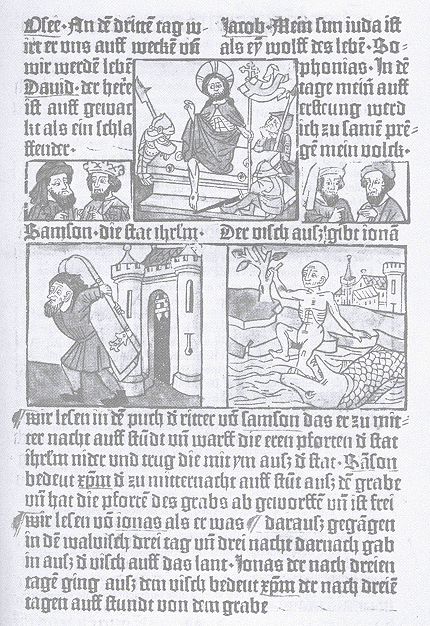 Osee · An dē drittē tag w-
irt er vns auff weckē vn̄
wir werdē lebē
Dauid · der herr
ist auff gewac
kt als ein schla
ffender ·
Jacob · Mein sun iuda ist
als eȳ wolff des lebē · So-
phonias · In dē
tage mein̄ auff
ersteung werd
ich zu samē prē=
gē mein volck ·
Samson · die stat ihrlm̄ ·
Der visch ausz gibt ionā
wir lesen in dē puch d̄ ritter vō samson das er zu mit=
ter nacht auff stūdt vn̄ warff die eren pforten d̄ stat
ihrlm̄ nider vnd trug die mit ym ausz d̄ stat · Sāson
bedeut xp̄m d̄ zu mitternacht auff stūt ausz dē grabe
vn̄ hat die pfortē des grabs ab geworffē vn̄ ist frei
wir lesen vō ionas als er was ¶ darausz gegāgen
in dē walvisch drei tag vn̄ drei nacht darnach gab
in ausz d̄ visch auff das lant · Jonas der nach dreien
tagē ging ausz dem visch bedeut xp̄m der nach dreiē
tagen auff stundt von dem grabe